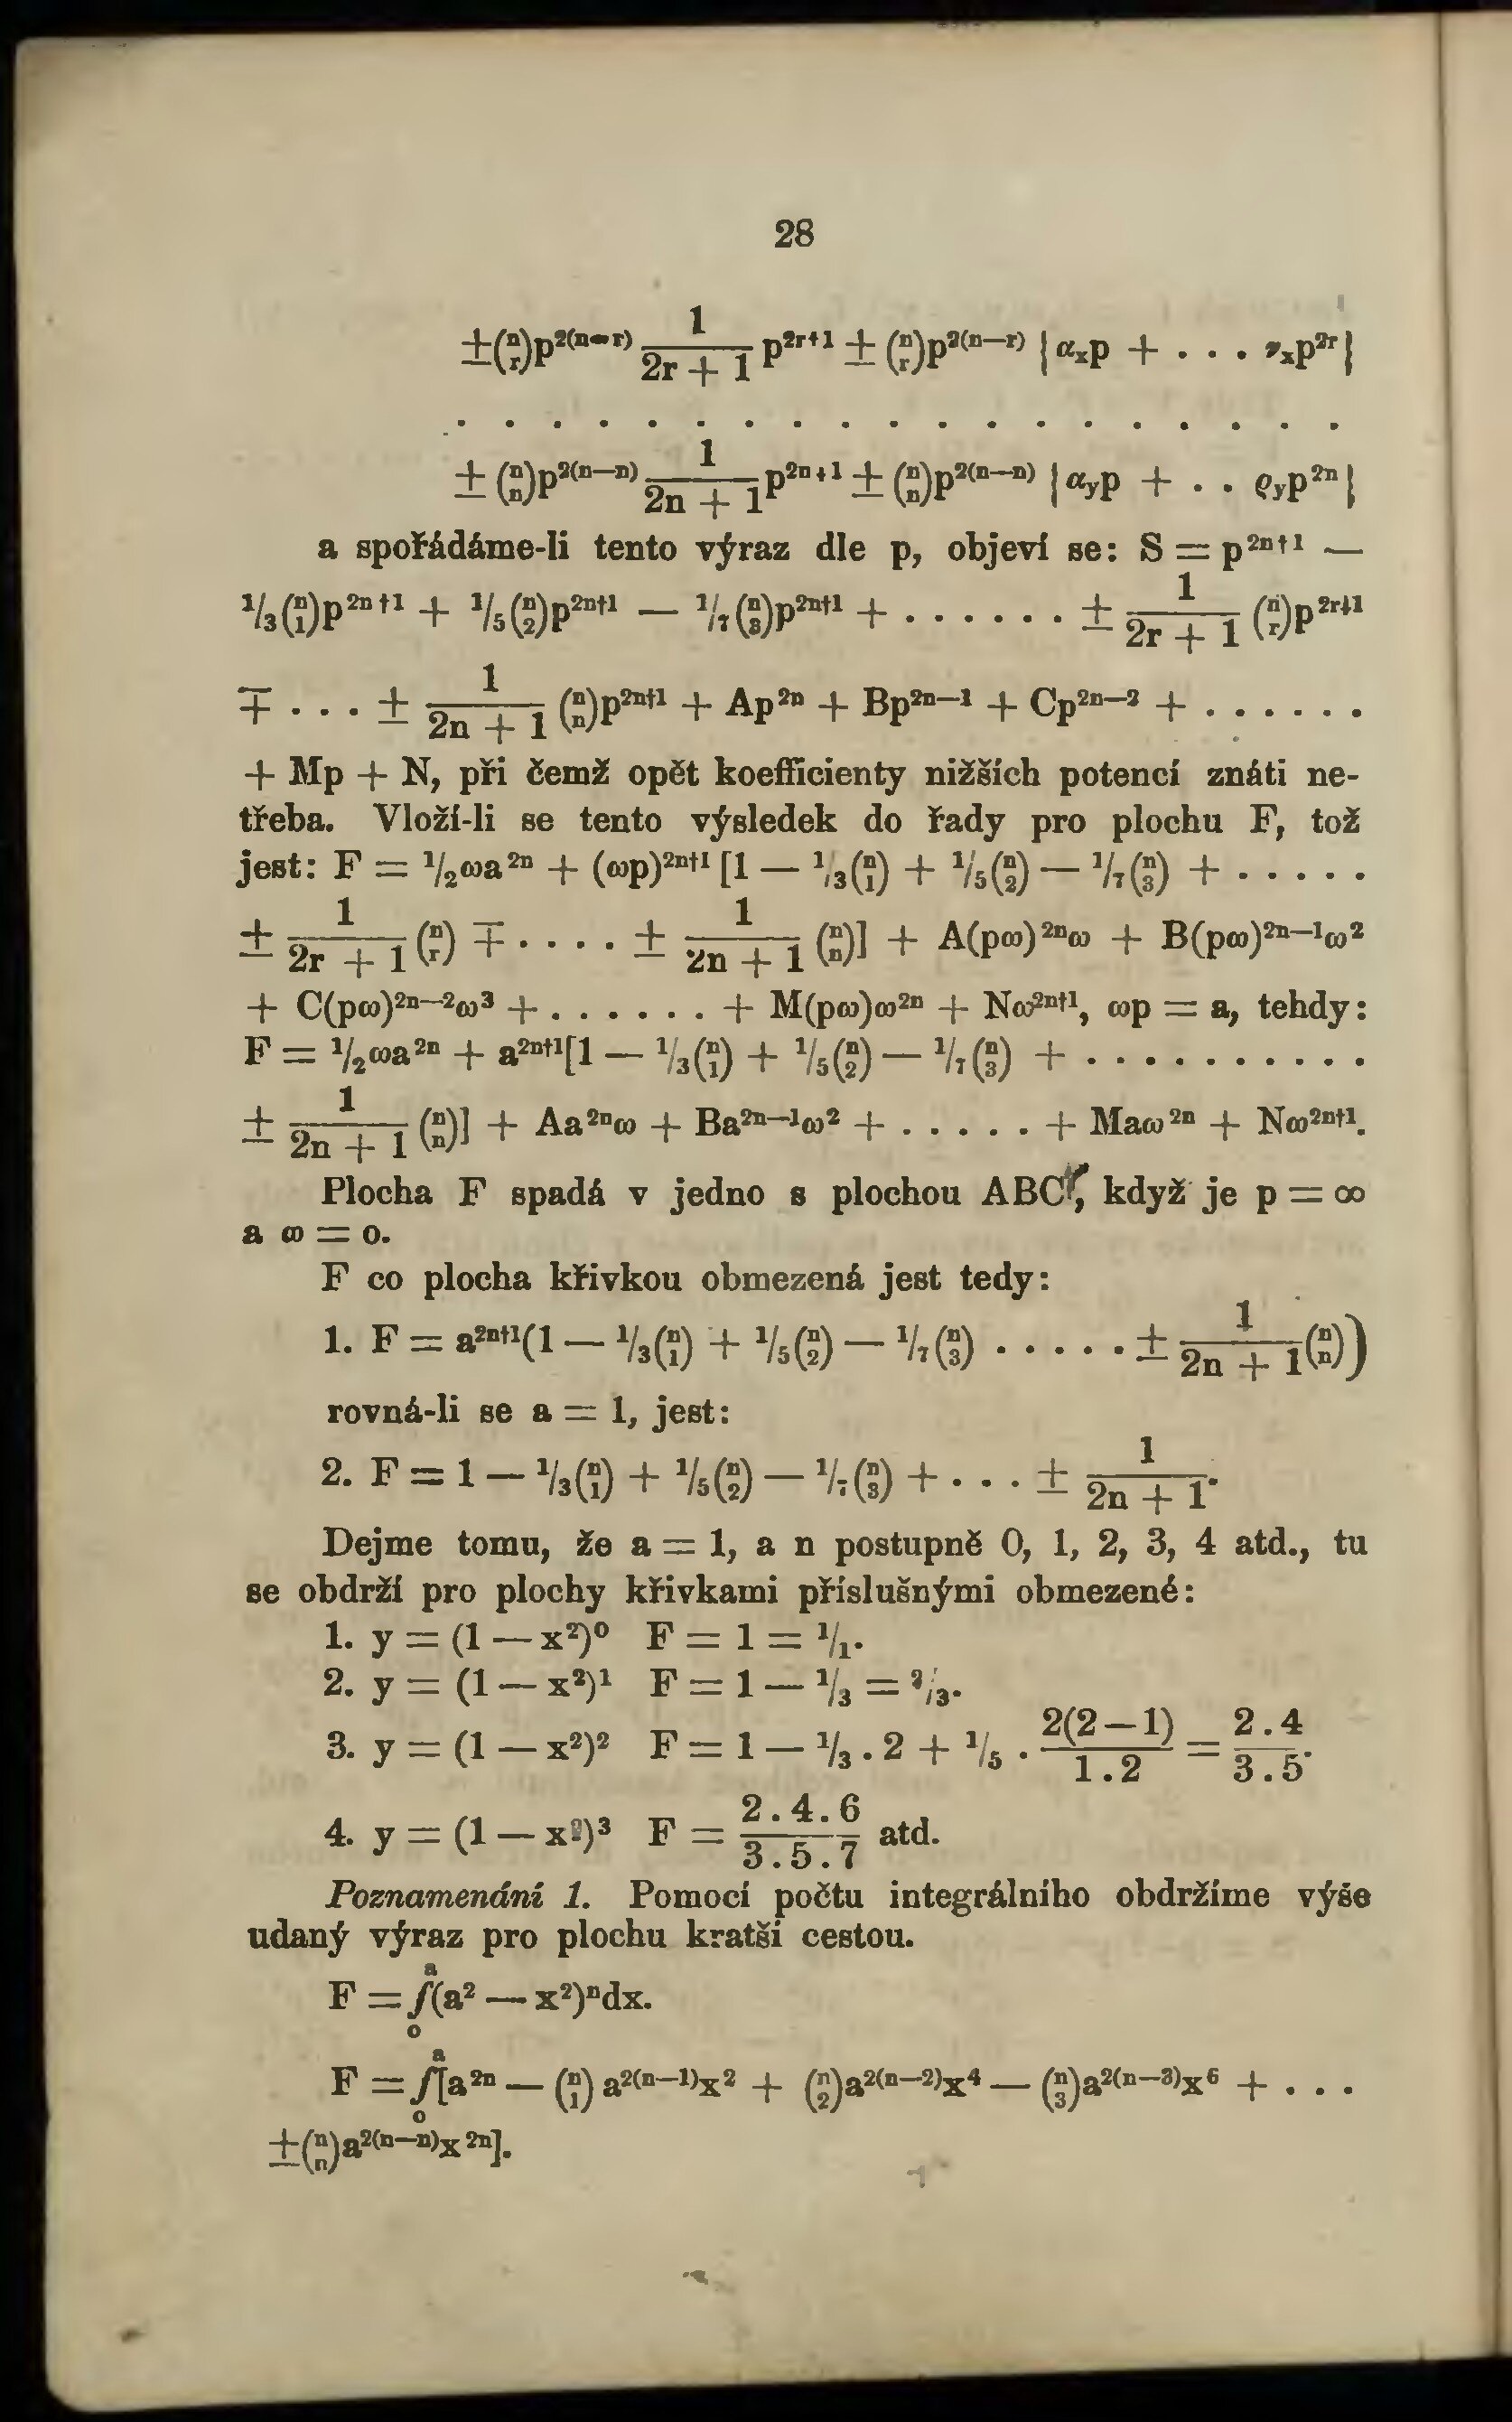 28
±(ⁿᵣ)p²⁽ⁿ⁻ʳ⁾ 1/(2r + 1) p²ʳ⁺¹ ± (ⁿᵣ)p²⁽ⁿ⁻ʳ⁾ {αₓp + . . . νₓp²ʳ}
. . . . . . . . . . . . . . . . . . .
± (n n)p²⁽ⁿ⁻ⁿ⁾ 1/(2n + 1) p²ⁿ⁺¹ ± (n n)p²⁽ⁿ⁻ⁿ⁾ {α_y p + . . ϱ_y p²ⁿ}
a spořádáme-li tento výraz dle p, objeví se: S = p²ⁿ⁺¹ —
¹/₃(n 1)p²ⁿ⁺¹ + ¹/₅(n 2)p²ⁿ⁺¹ — ¹/₇(n 3)p²ⁿ⁺¹ + . . . . . . ± 1/(2r + 1) (n r)p²ʳ⁺¹
∓ . . . ± 1/(2n + 1) (n n)p²ⁿ⁺¹ + Ap²ⁿ + Bp²ⁿ⁻¹ + Cp²ⁿ⁻² + . . . . . .
+ Mp + N, při čemž opět koefficienty nižších potencí znáti ne-
třeba. Vloží-li se tento výsledek do řady pro plochu F, tož
jest: F = ¹/₂ωa²ⁿ + (ωp)²ⁿ⁺¹ [1 — ¹/₃(n 1) + ¹/₅(n 2) — ¹/₇(n 3) + . . . . .
± 1/(2r + 1) (n r) ∓ . . . . ± 1/(2n + 1) (n n)] + A(pω)²ⁿω + B(pω)²ⁿ⁻¹ω²
+ C(pω)²ⁿ⁻²ω³ + . . . . . . + M(pω)ω²ⁿ + Nω²ⁿ⁺¹, ωp = a, tehdy:
F = ¹/₂ωa²ⁿ + a²ⁿ⁺¹[1 — ¹/₃(n 1) + ¹/₅(n 2) — ¹/₇(n 3) + . . . . . . . . . .
± 1/(2n + 1) (n n)] + Aa²ⁿω + Ba²ⁿ⁻¹ω² + . . . . . + Maω²ⁿ + Nω²ⁿ⁺¹.
Plocha F spadá v jedno s plochou ABC, když je p = ∞
a ω = o.
F co plocha křivkou obmezená jest tedy:
1. F = a²ⁿ⁺¹(1 — ¹/₃(n 1) + ¹/₅(n 2) — ¹/₇(n 3) . . . . . ± 1/(2n + 1) (n n))
rovná-li se a = 1, jest:
2. F = 1 — ¹/₃(n 1) + ¹/₅(n 2) — ¹/₇(n 3) + . . . ± 1/(2n + 1).
Dejme tomu, že a = 1, a n postupně 0, 1, 2, 3, 4 atd., tu
se obdrží pro plochy křivkami příslušnými obmezené:
1. y = (1 — x²)⁰ F = 1 = ¹/₁.
2. y = (1 — x²)¹ F = 1 — ¹/₃ = ²/₃.
3. y = (1 — x²)² F = 1 — ¹/₃ . 2 + ¹/₅ . 2(2 — 1)/1 . 2 = 2 . 4/3 . 5.
4. y = (1 — x²)³ F = 2 . 4 . 6/3 . 5 . 7 atd.
Poznamenání 1. Pomocí počtu integrálního obdržíme výše
udaný výraz pro plochu kratší cestou.
F = ∫ₒᵃ(a² — x²)ⁿdx.
F = ∫ₒᵃ[a²ⁿ — (n 1) a²⁽ⁿ⁻¹⁾x² + (n 2)a²⁽ⁿ⁻²⁾x⁴ — (n 3)a²⁽ⁿ⁻³⁾x⁶ + . . .
±(n n)a²⁽ⁿ⁻ⁿ⁾x²ⁿ].